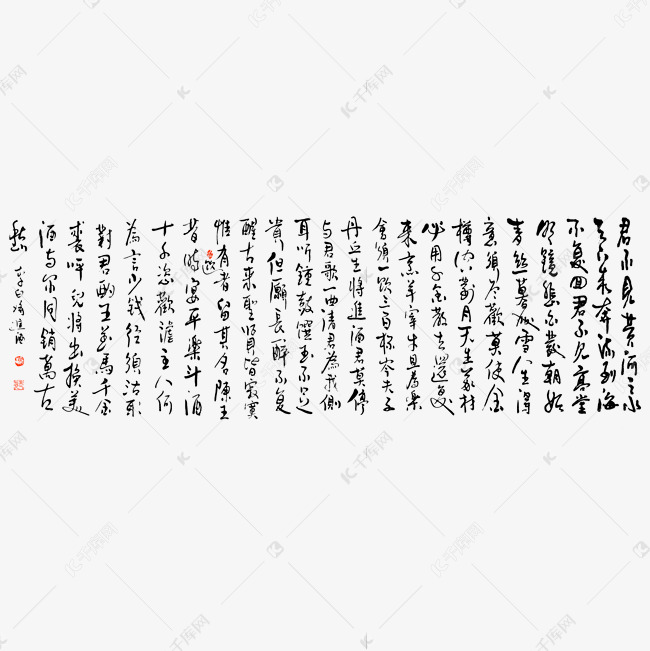 君不見黃河之水
天上來奔流到海
不復回君不見高堂
明鏡悲白髮朝如
青絲暮成雪人生得
意須盡歡莫使金
樽空對月天生我材
必用千金散去還復
來烹羊宰牛且為樂
會須一飲三百杯岑夫子
丹丘生將進酒君莫停
與君歌一曲請君為我側
耳聽鐘鼓饌玉不足
貴但願長醉不復
醒古來聖賢皆寂寞
惟有者留其名陳王
飲
昔時宴平樂斗酒
十千恣歡謔主人何
為言少錢徑須沽取
對君酌五花馬千金
裘呼兒將出換美
酒與爾同銷萬古
愁
李白將進酒
千库网